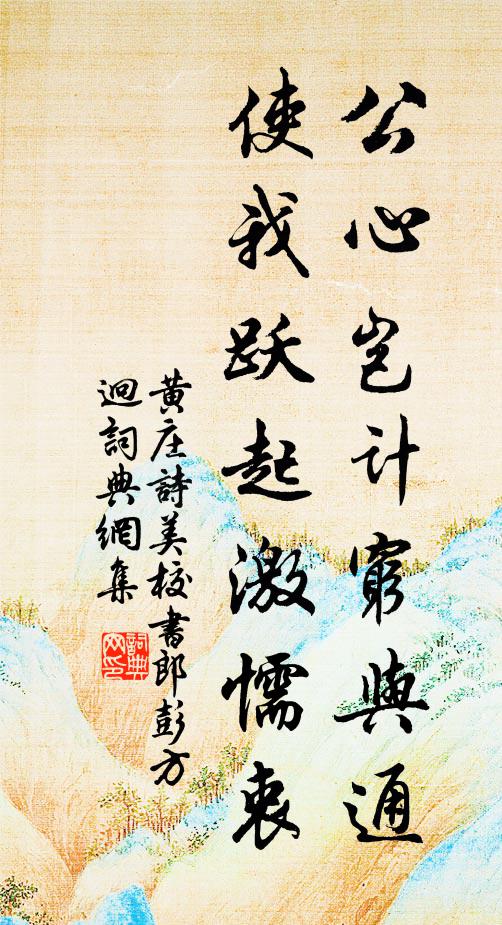 公心岂计窮與通
使我跃起激懦衷
黄庄詩美校書郎彭方
迥詞典網集
詞典網印